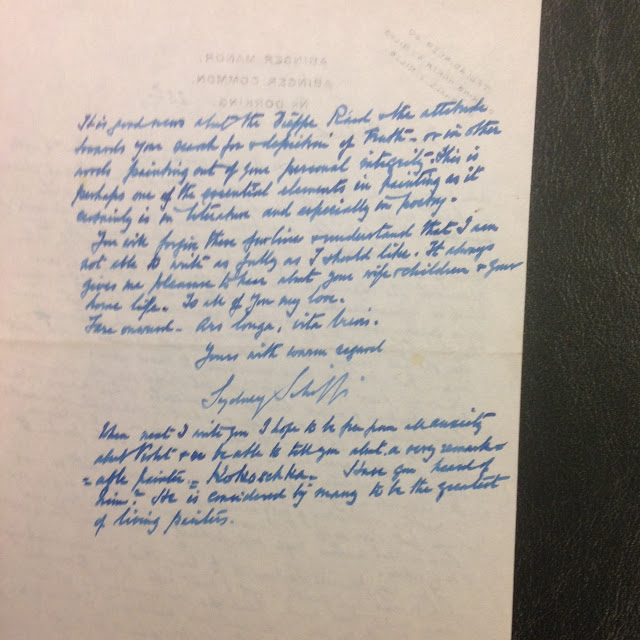 ABINGER MANOR.
ABINGER COMMON
Nr DORKING.
It is good news about the Dieppe Rind & the attitude
towards your search for & depiction of Truth – or in other
words painting out of your personal integrity. This is
perhaps one of the essential elements in painting as it
certainly is in literature and especially in poetry.
You will forgive these few lines & understand that I am
not able to write as fully as I should like. It always
gives me pleasure to hear about your wife & children & your
home life. To all of you my love.
Fare onward – Ars longa, vita brevis.
Yours with warm regard
Sydney Schiff
When next I write you I hope to be free from all anxiety
about & be able to tell you about a very remark-
= able painter = Kokoschka – Have you heard of
him? He is considered by many to be the greatest
of living painters.